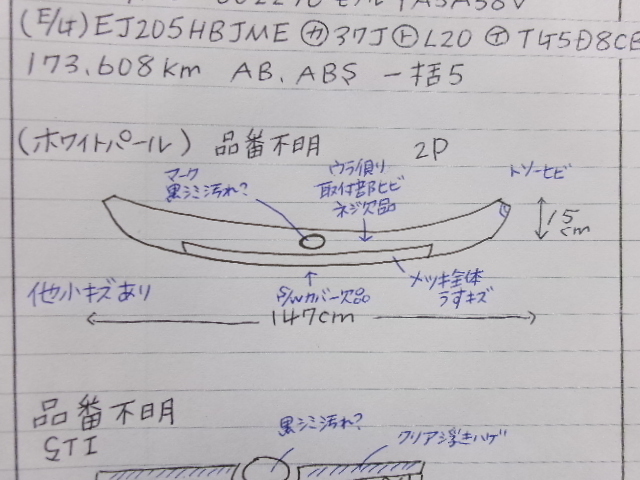 (E/G) EJ205HBJME カ 37J ト L20 イ T
173.608km AB.ABS 一括5
(ホワイトパール) 品番不明 2P
マーク
黒シミ汚れ?
ウラ側リ
取付部ヒビ
ネジ欠品
トソーヒビ
15
cm
他小キズあり
S/Wカバー欠品
メッキ全体
うすキズ
147cm
品番不明
STI
黒シミ汚れ?
クリア浮きハゲ